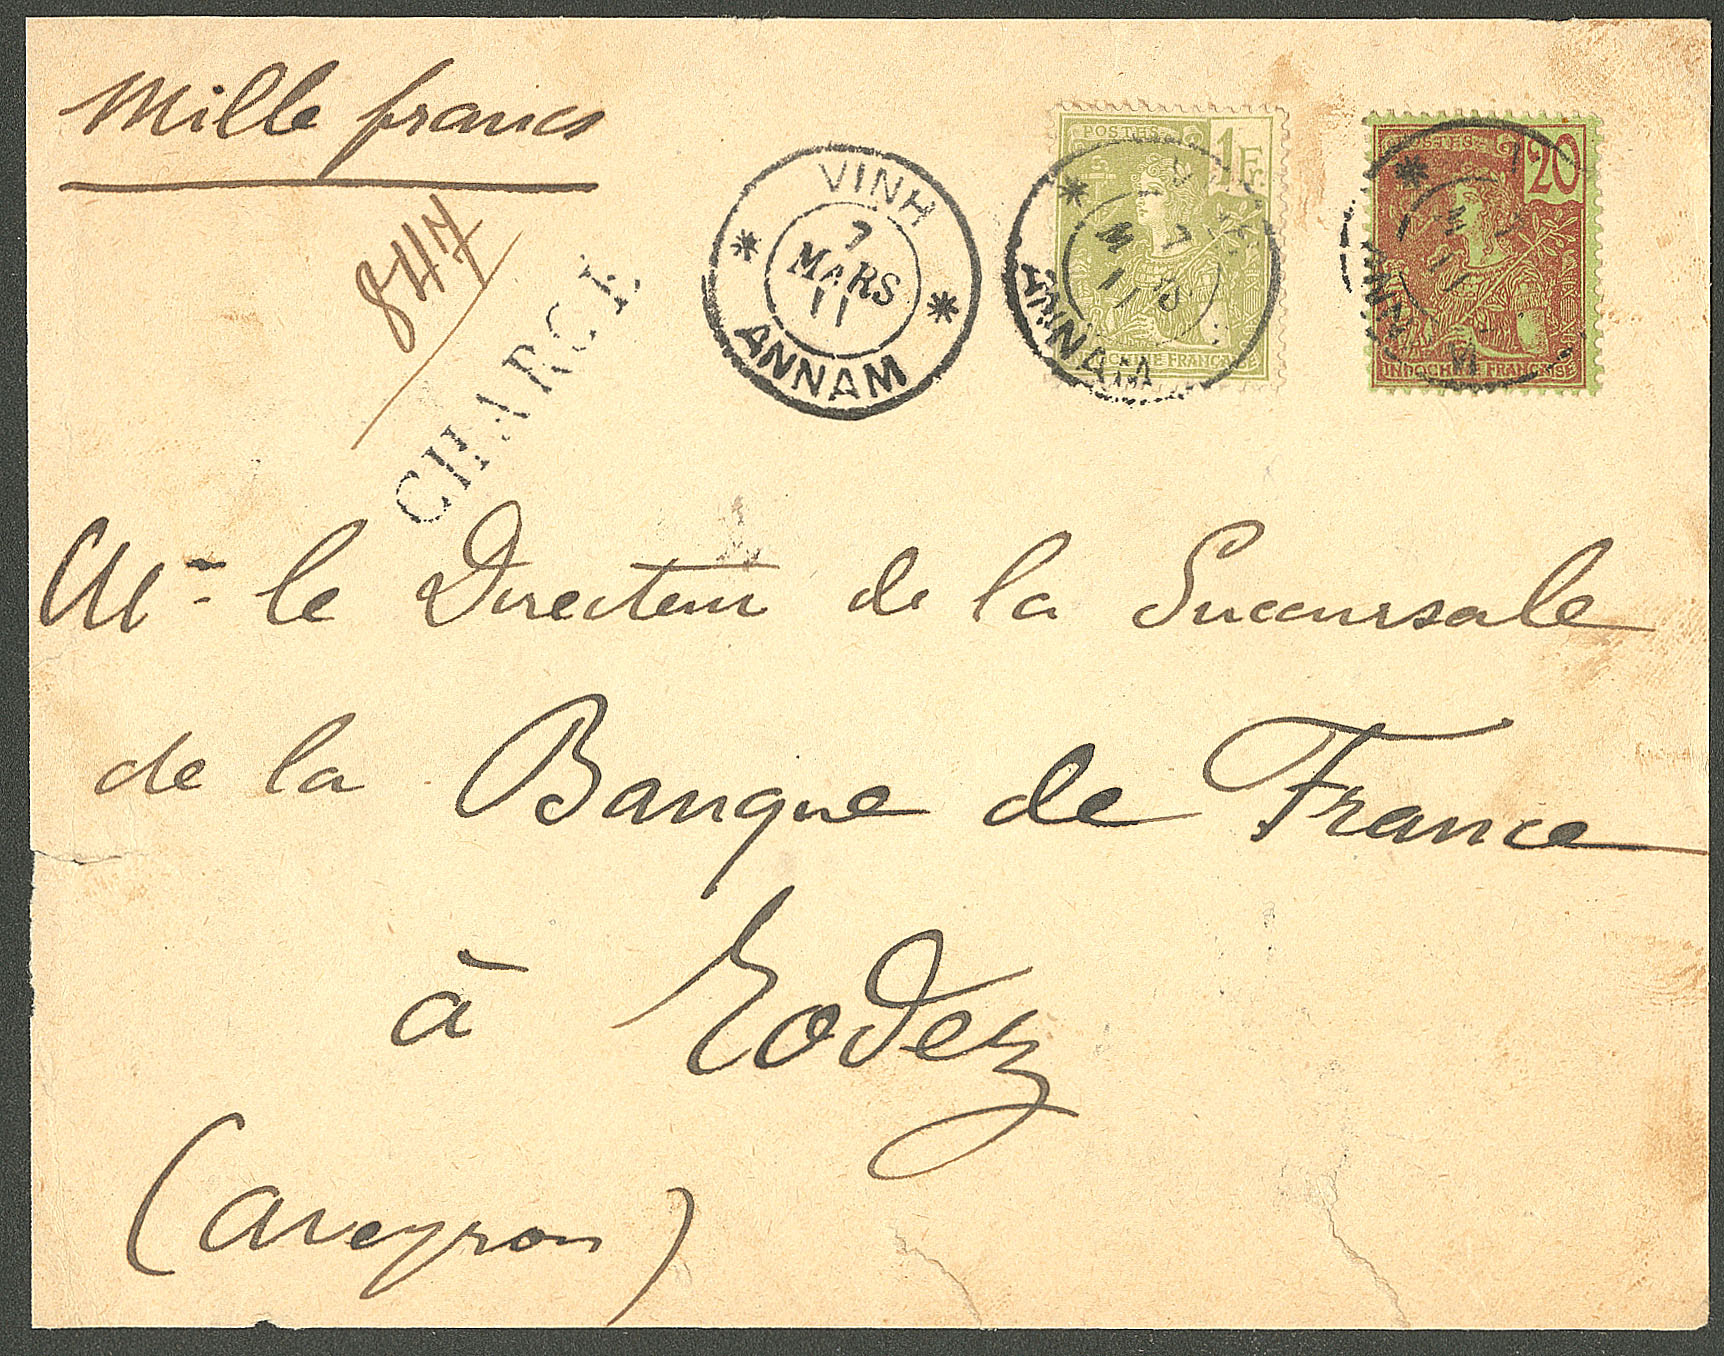 Mille francs
847
CHARGÉ
VINH
7
MARS
11
ANNAM
POSTES
1Fr.
INDOCHINE FRANÇAISE
7
11
ANNAM
POSTES
20
INDOCHINE FRANÇAISE
11
ANNAM
Mr le Directeur de la Succursale
de la Banque de France
à Rodez
(Aveyron)